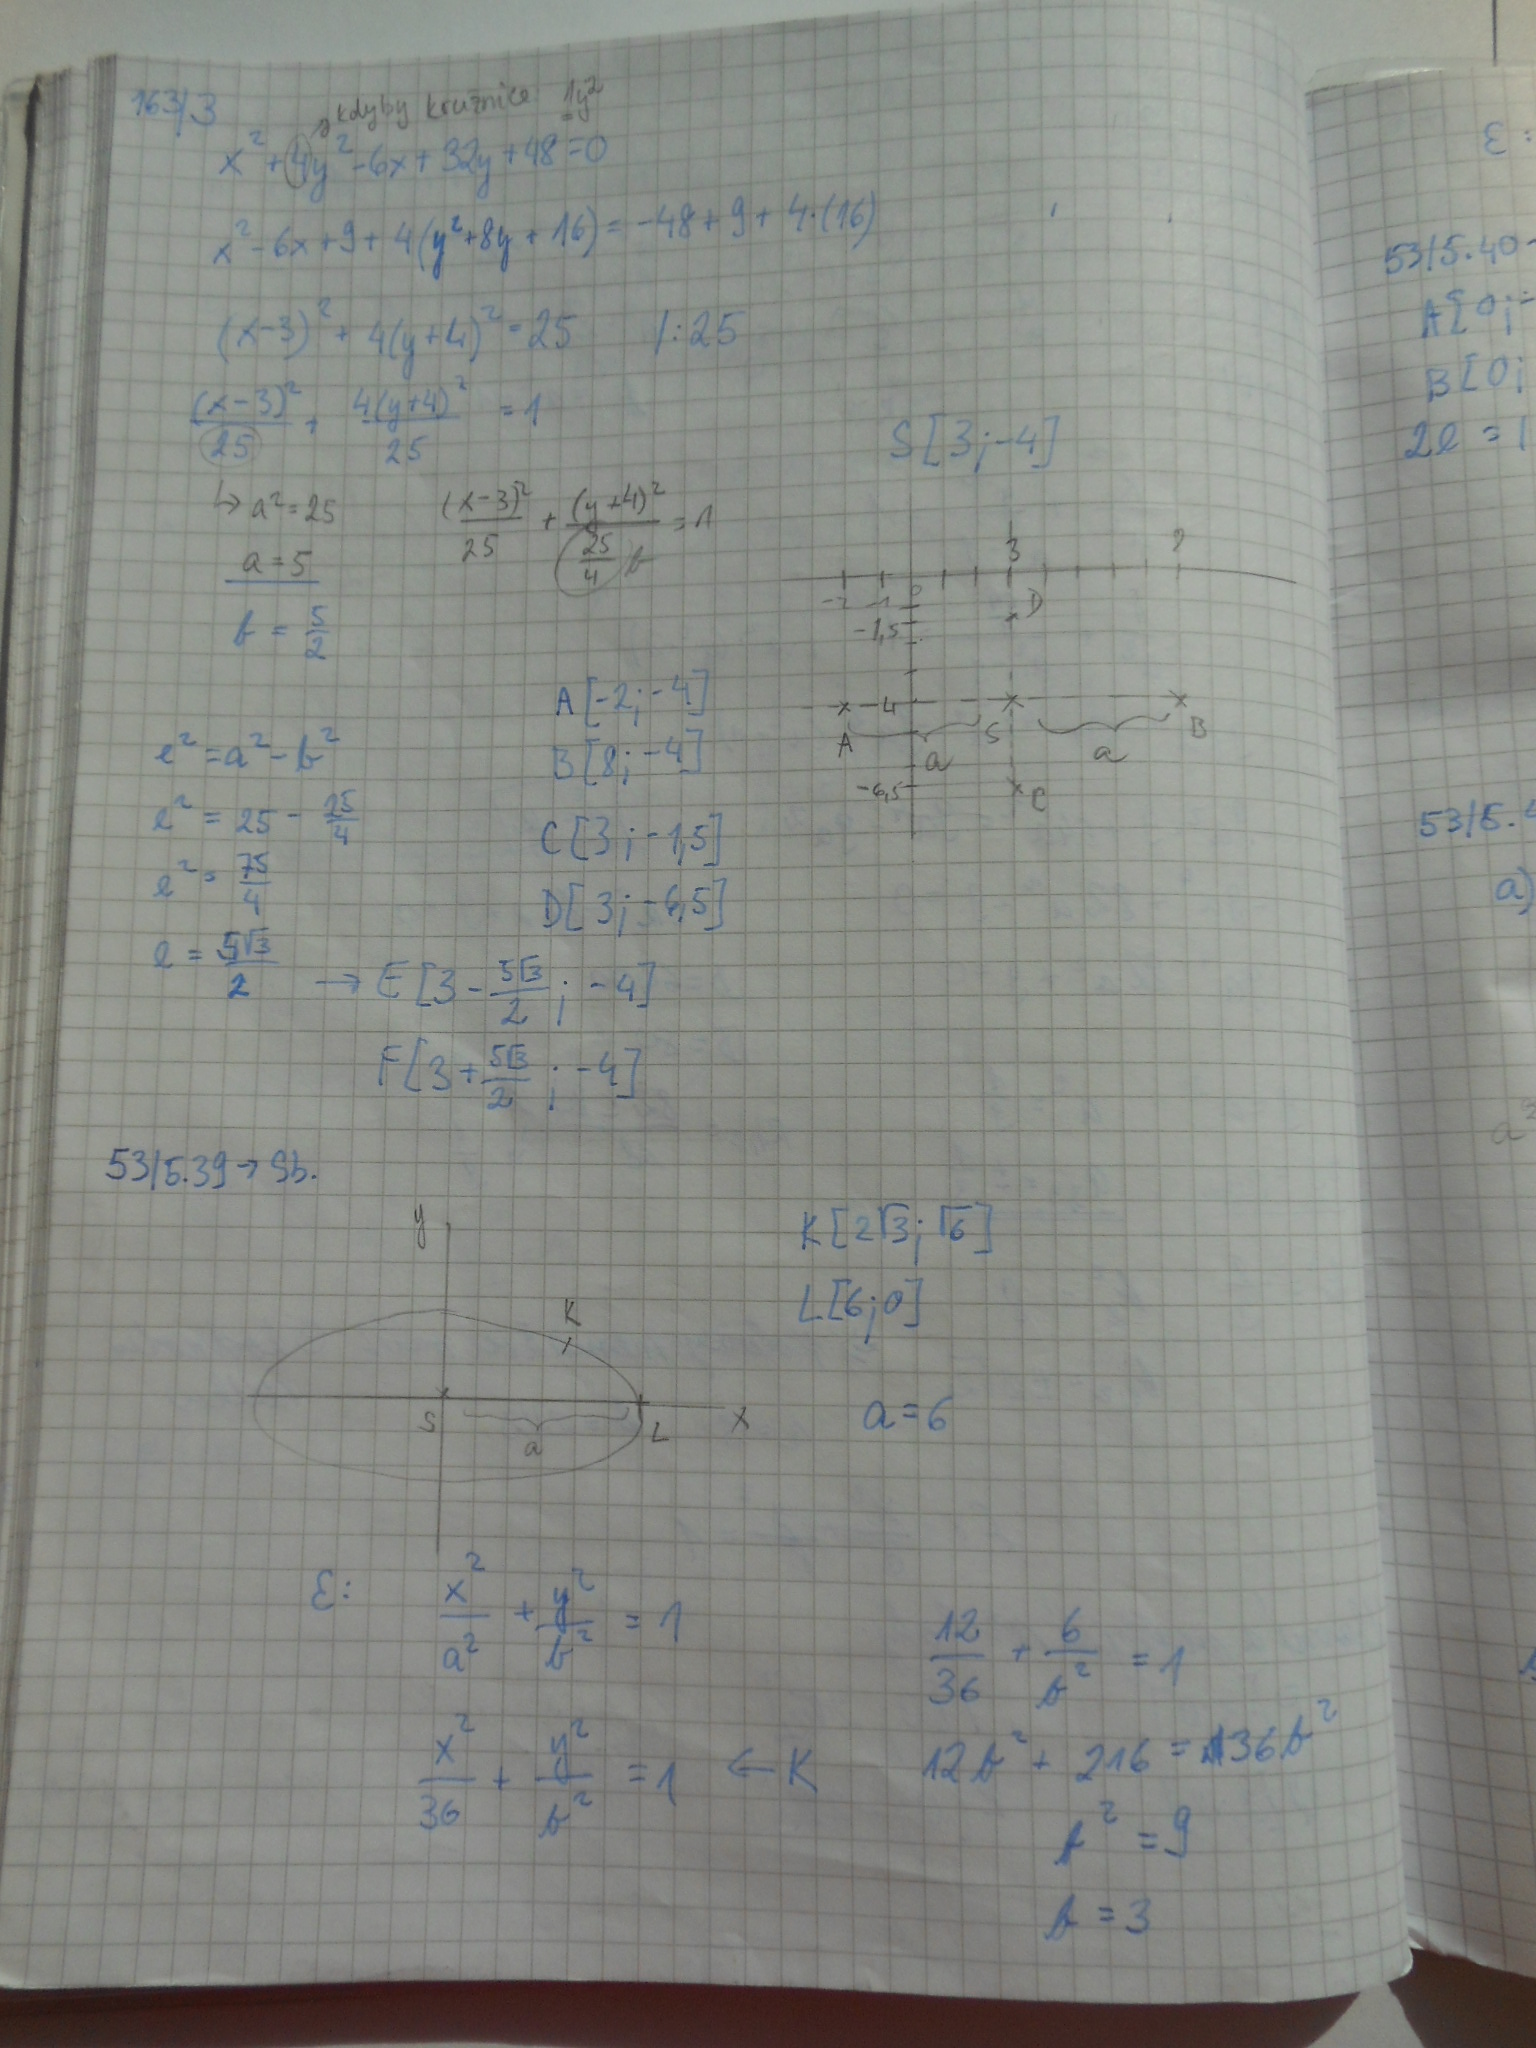 163/3
kdyby kružnice 1y²
x² + 4y² - 6x + 32y + 48 = 0
x² - 6x + 9 + 4(y² + 8y + 16) = -48 + 9 + 4·(16)
(x-3)² + 4(y+4)² = 25 /:25
(x-3)²/25 + 4(y+4)²/25 = 1
↳ a² = 25
(x-3)²/25 + (y+4)²/(25/4) = 1
b
a = 5
b = 5/2
S[3;-4]
3
8
-2 -1 0
D
-1,5
-4
A
S
B
a
a
-6,5
C
A[-2;-4]
B[8;-4]
C[3;-1,5]
D[3;-6,5]
e² = a² - b²
e² = 25 - 25/4
e² = 75/4
e = 5√3/2
→ E[3 - 5√3/2; -4]
F[3 + 5√3/2; -4]
53/5.39 → Sb.
y
K
S
a
L
x
K[2√3; √6]
L[6;0]
a = 6
Ɛ: x²/a² + y²/b² = 1
x²/36 + y²/b² = 1 ← K
12/36 + 6/b² = 1
12b² + 216 = 36b²
b² = 9
b = 3
Ɛ:
53/5.40
A[0;
B[0;
2e = 1
53/5.4
a)
a²